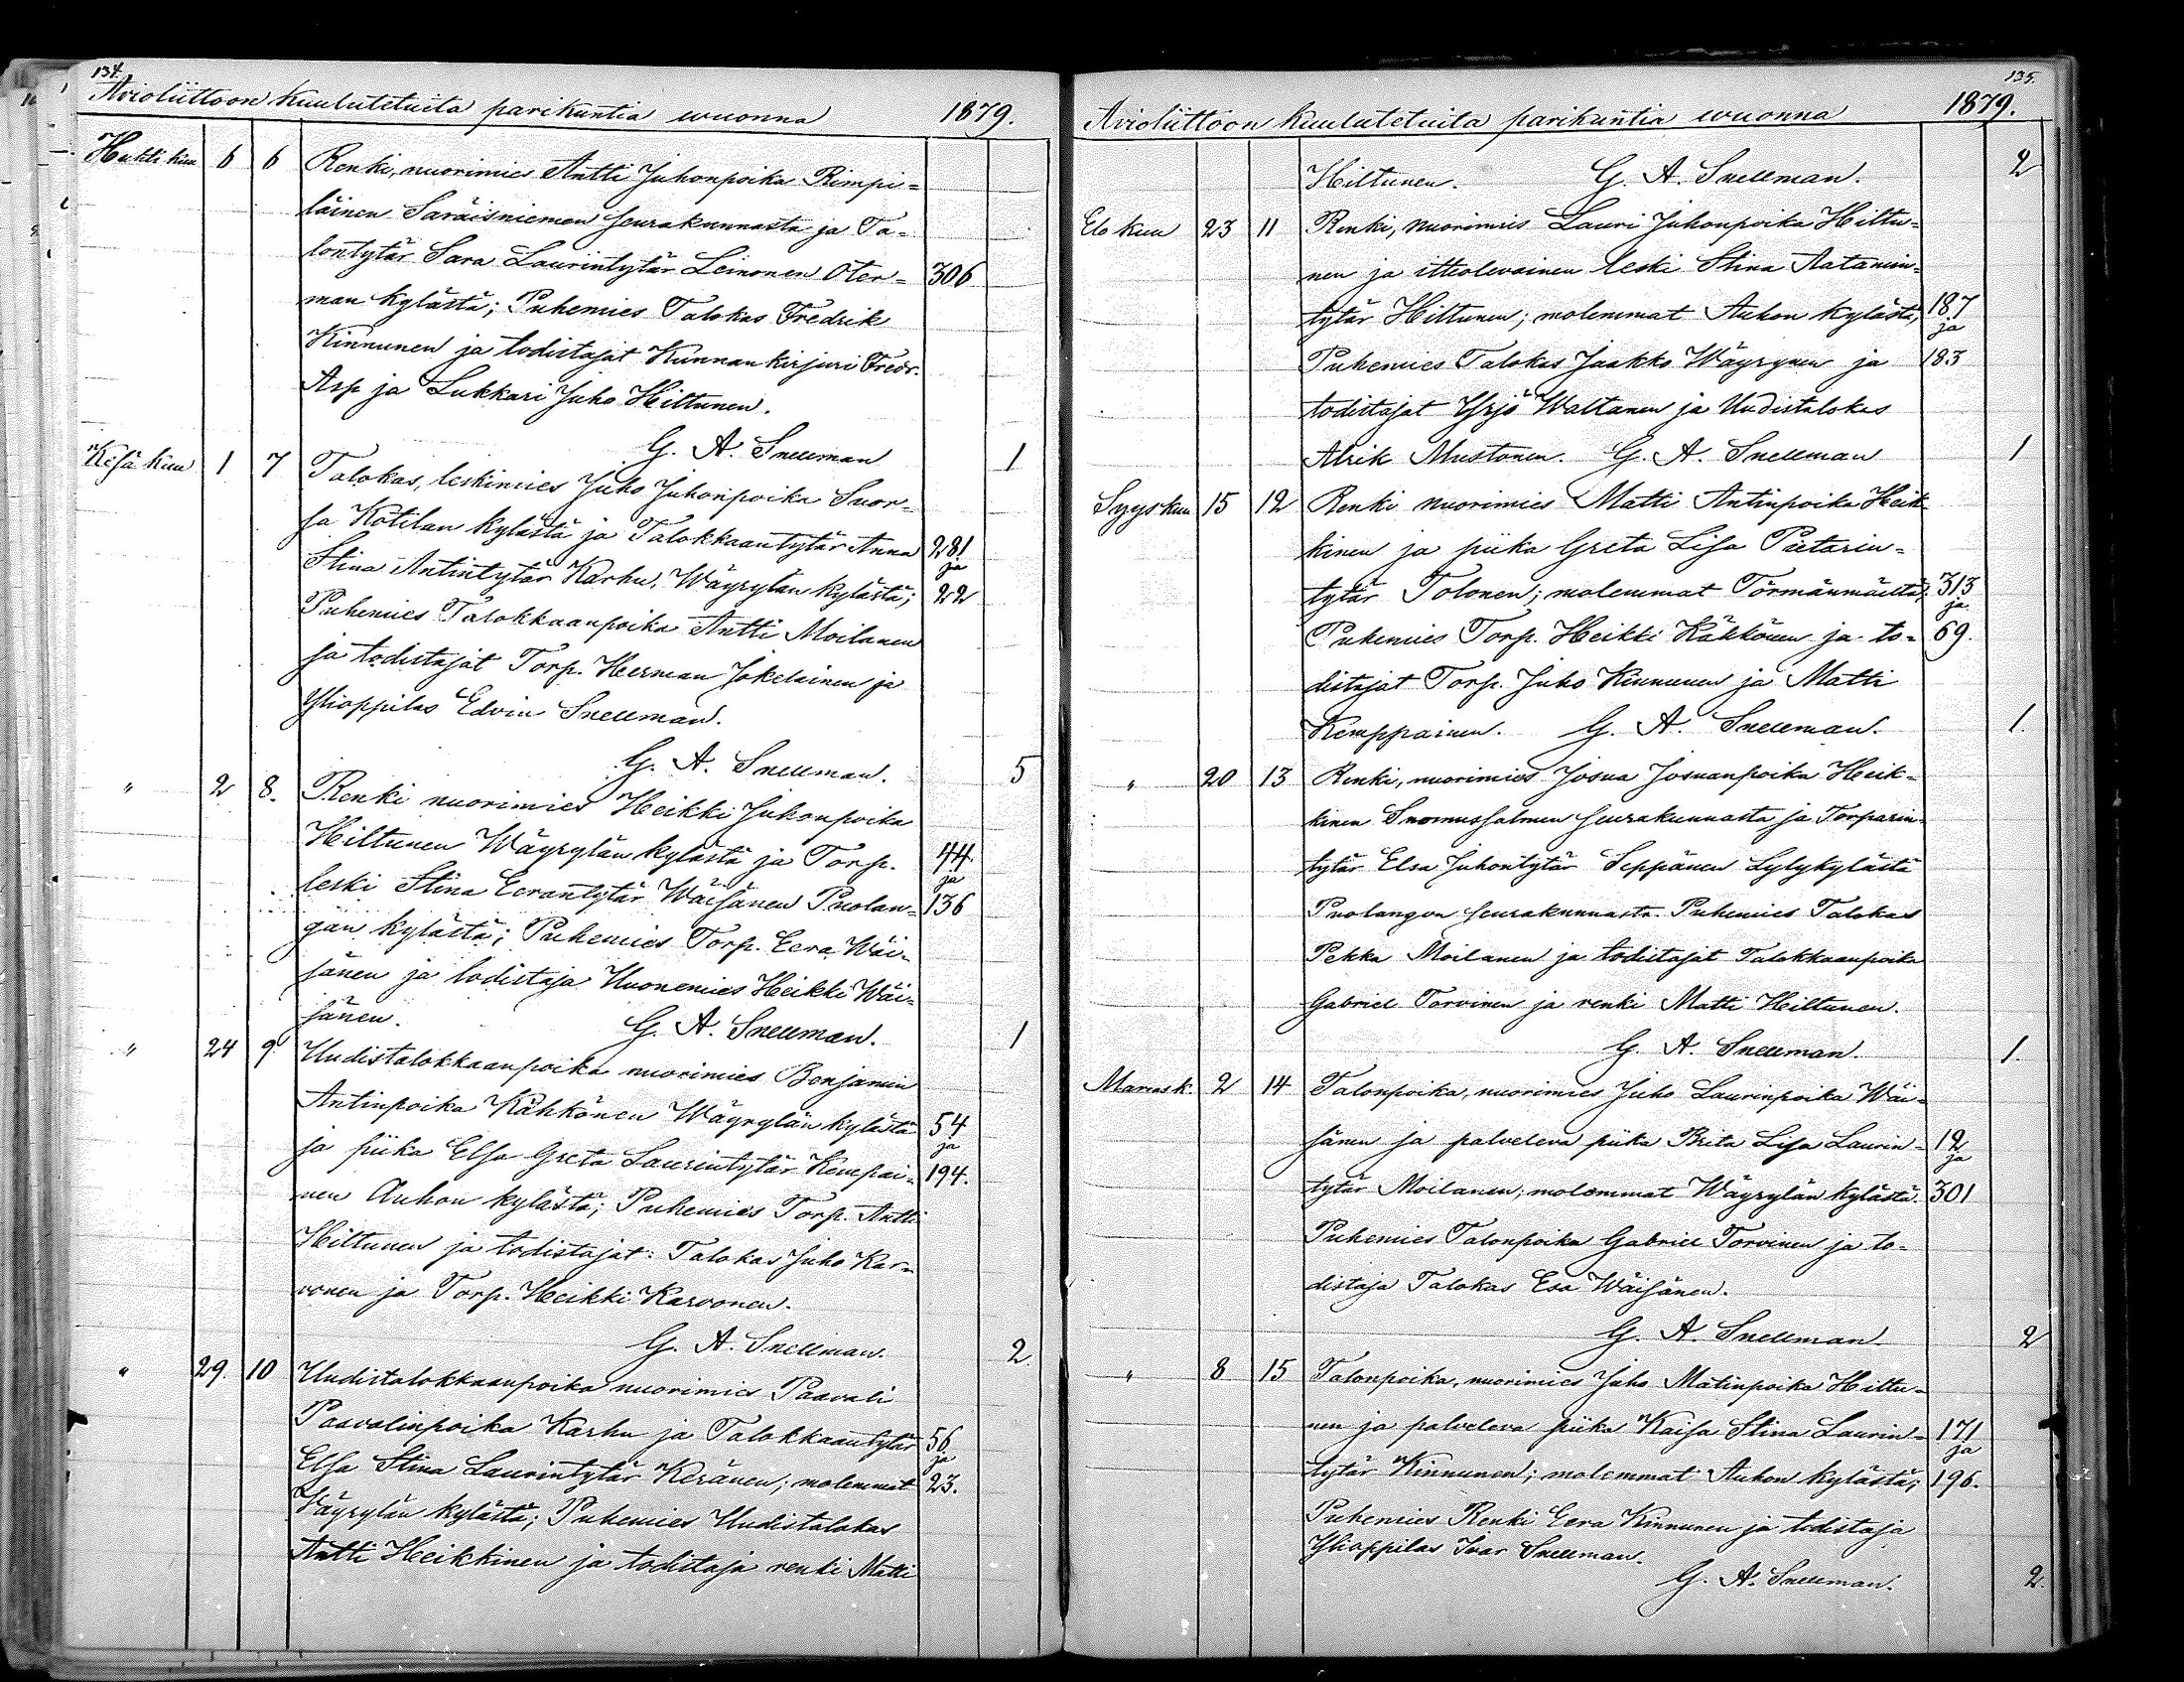 134.
Avioliittoon kuulutetuita parikuntia wuonna 1879.
Huhti kuu 6 6 Renki, nuorimies Antti Juhonpoika Rimpi=
läinen Säräisniemen seurakunnasta ja Ta=
lontytär Sara Laurintytär Leinonen Oter= 306
man kylästä; Puhemies Talokas Fredrik
Kinnunen ja todistajat Kunnankirjuri Fredr.
Asp ja Lukkari Juho Hiltunen.
G. A. Snellman 1
Kesä kuu 1 7 Talokas, leskimies Juho Juhonpoika Suor=
sa Kotilan kylästä ja Talokkaantytär Anna 281
ja
Stina Antintytär Karhu, Wäyrylän kylästä; 22
Puhemies Talokkaanpoika Antti Moilanen
ja todistajat Torp. Herman Jokelainen ja
Ylioppilas Edvin Snellman.
G. A. Snellman. 5
" 2 8. Renki nuorimies Heikki Juhonpoika
Hiltunen Wäyrylän kylästä ja Torp. 44.
ja
leski Stina Eerantytär Wäisänen Puolan= 136
gan kylästä; Puhemies Torp. Eera Wäi=
sänen ja todistaja Huonemies Heikki Wäi=
sänen. G. A. Snellman. 1
" 24 9 Uudistalokkaanpoika nuorimies Benjamin
Antinpoika Kähkönen Wäyrylän kylästä 54
ja
ja piika Elsa Greta Laurintytär Kempai= 194.
nen Auhon kylästä; Puhemies Torp. Antti
Hiltunen ja todistajat: Talokas Juho Kar=
vonen ja Torp. Heikki Karvonen.
G. A. Snellman. 2.
" 29. 10 Uudistalokkaanpoika nuorimies Paavali
Paavalinpoika Karhu ja Talokkaantytär 56.
ja
Elsa Stina Laurintytär Keränen; molemmat 23.
Wäyrylän kylästä; Puhemies Uudistalokas
Antti Heikkinen ja todistaja renki Matti
135.
Avioliittoon kuulutetuita parikuntia wuonna 1879.
Hiltunen. G. A. Snellman. 2
Elo kuu 23 11 Renki, nuorimies Lauri Juhonpoika Hiltu=
nen ja itteolevainen leski Stina Aatamin=
tytär Hiltunen; molemmat Auhon kylästä; 187
ja
Puhemies Talokas Jaakko Wäyrynen ja 183
todistajat Yrjö Waltanen ja Uudistalokas
Alrik Mustonen. G. A. Snellman 1
Syys kuu 15 12 Renki nuorimies Matti Antinpoika Heik=
kinen ja piika Greta Lisa Pietarin=
tytär Tolonen; molemmat Törmänmäeltä; 313
ja
Puhemies Torp. Heikki Kähkönen ja to= 69.
distajat Torp. Juho Kinnunen ja Matti
Kemppainen. G. A. Snellman. 1.
" 20 13 Renki, nuorimies Josua Josuanpoika Heik=
kinen Suomussalmen seurakunnasta ja Torparin=
tytär Elsa Juhontytär Seppänen Lylykylästä
Puolangon seurakunnasta. Puhemies Talokas
Pekka Moilanen ja todistajat Talokkaanpoika
Gabriel Torvinen ja renki Matti Hiltunen.
G. A. Snellman. 1.
Marrask. 2 14 Talonpoika, nuorimies Juho Laurinpoika Wäi=
sänen ja palveleva piika Brita Lisa Laurin= 12
ja
tytär Moilanen; molemmat Wäyrylän kylästä. 301
Puhemies Talonpoika Gabriel Torvinen ja to=
distaja Talokas Esa Wäisänen.
G. A. Snellman. 2
" 8 15 Talonpoika, nuorimies Juho Matinpoika Hiltu=
nen ja palveleva piika Kaisa Stina Laurin= 171
ja
tytär Kinnunen; molemmat Auhon kylästä; 196.
Puhemies Renki Eera Kinnunen ja todistaja
Ylioppilas Ivar Snellman.
G. A. Snellman. 2.